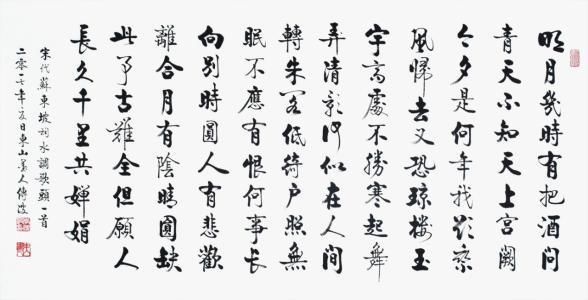 明月幾時有把酒問
青天不知天上宮闕
今夕是何年我欲乘
風歸去又恐瓊樓玉
宇高處不勝寒起舞
弄清影何似在人間
轉朱閣低綺户照無
眠不應有恨何事長
向別時圓人有悲歡
離合月有陰晴圓缺
此事古難全但願人
長久千里共嬋娟
宋代蘇東坡詞水調歌頭一首
二零一七年夏日東山人